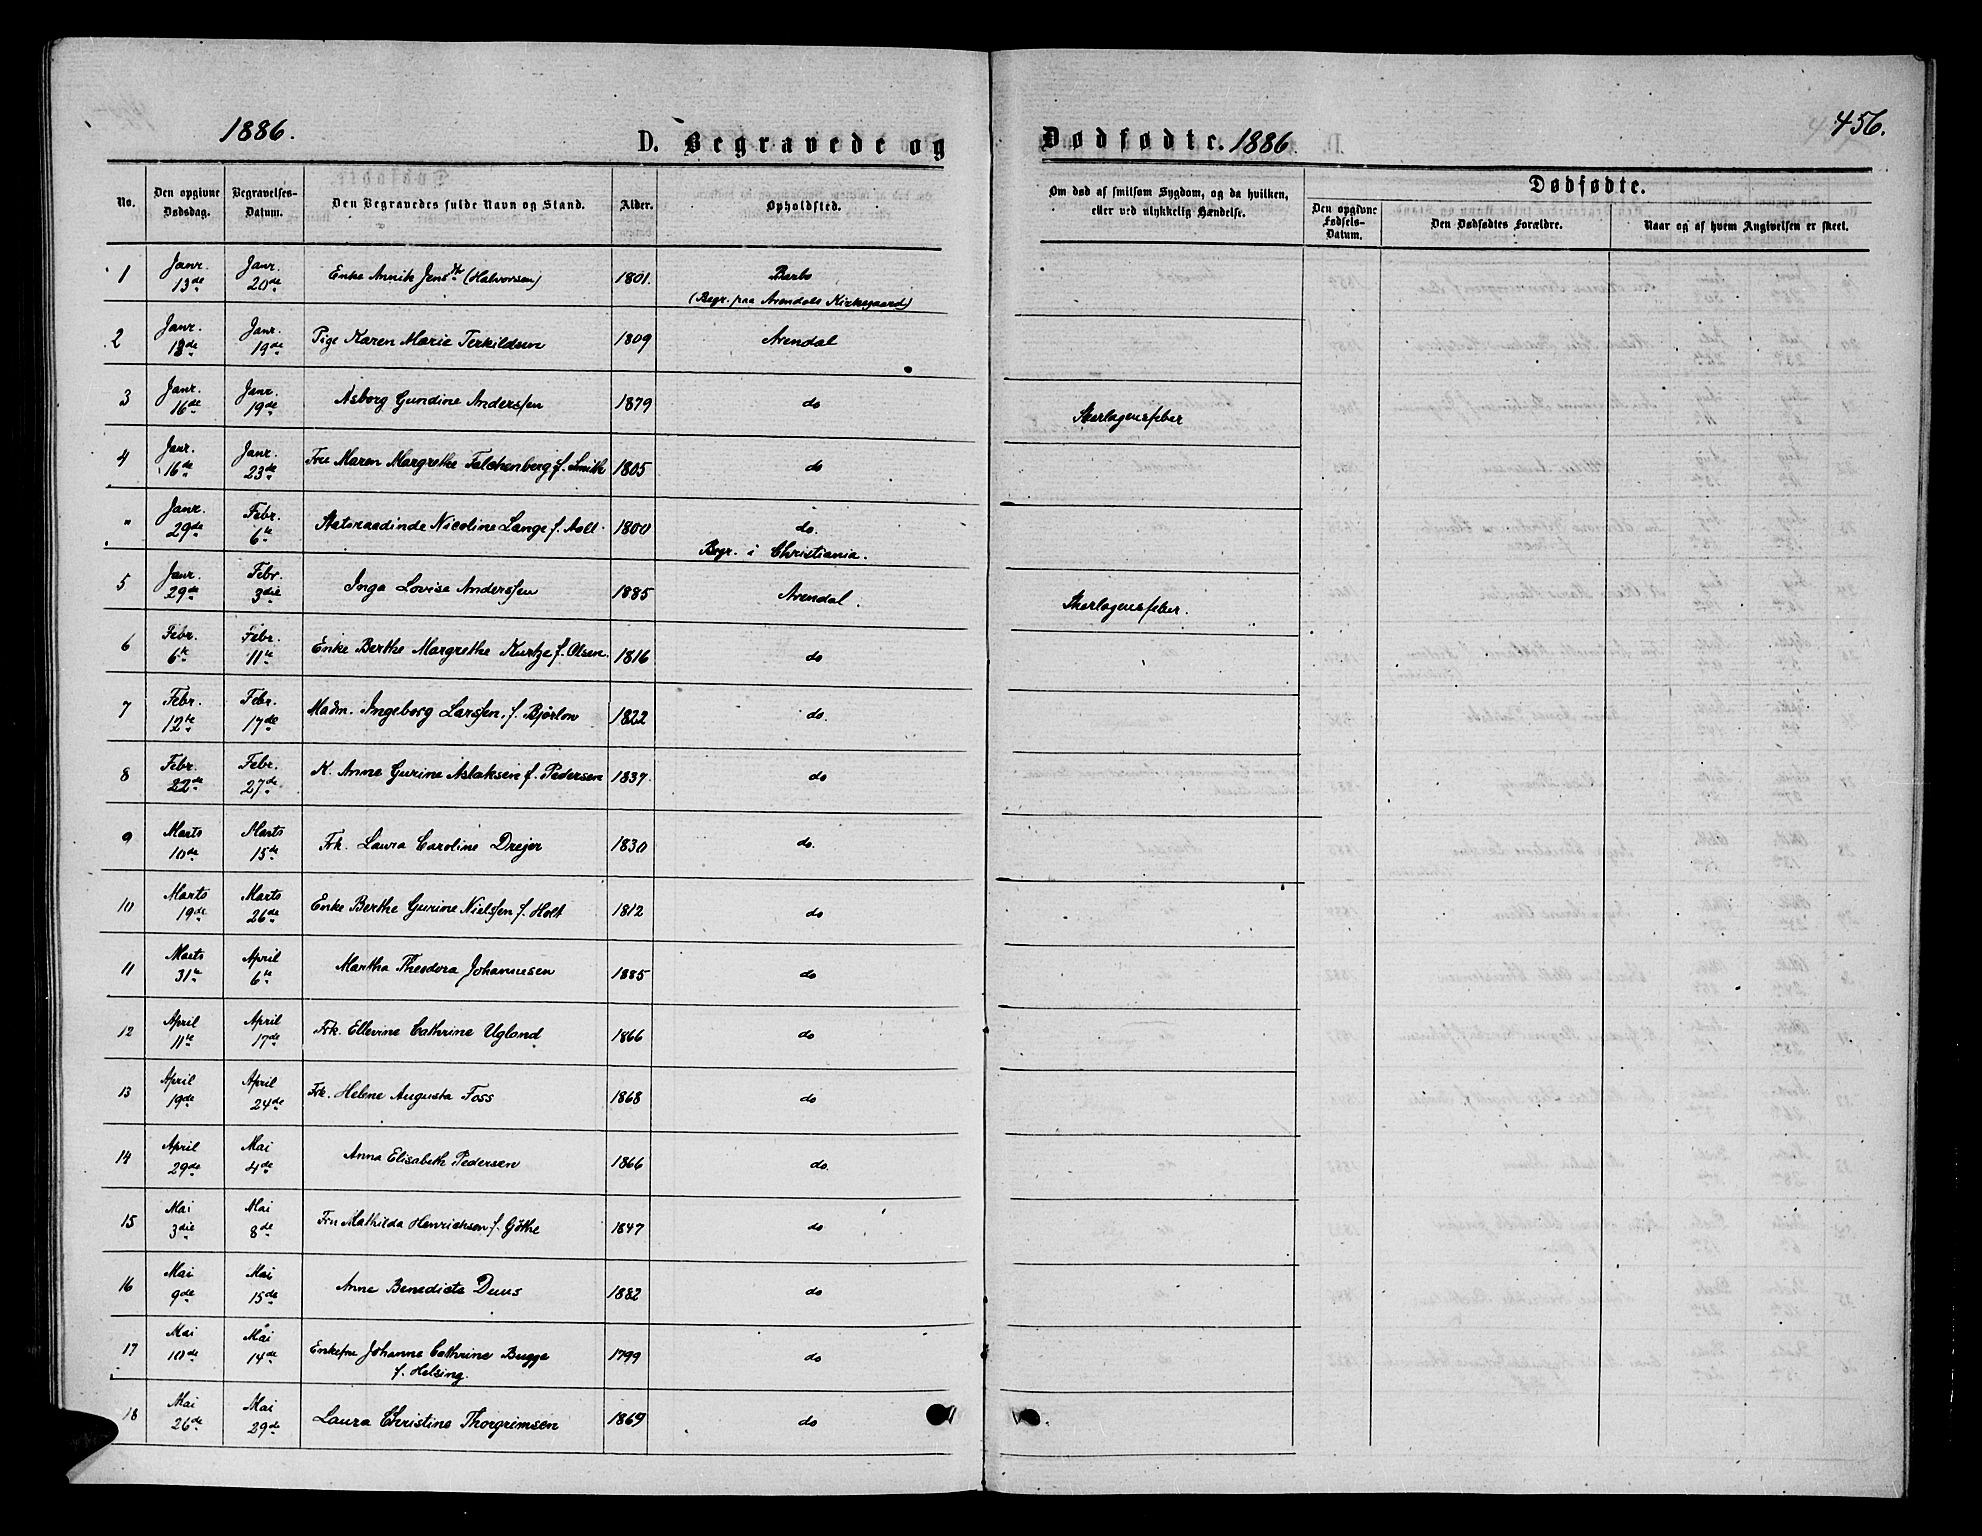 1886. D. Begravede og Dødfødte. 1886 456.
No. Den opgivne Dødsdag. Begravelses-Datum. Den Begravedes fulde Navn og Stand. Alder. Opholdsted. Om død af smitsom Sygdom, og da hvilken, eller ved ulykkelig Hændelse. Dødfødte.
Den opgivne Fødsels-Datum. Den Dødfødtes Forældre. Naar og af hvem Angivelsen er skeet.
1 Janr. 13de Janr. 20de Enke Annik Jensdtr (Halvorsen) 1801. Barbo
(Begr. paa Arendals Kirkegaard)
2 Janr. 13de Janr. 19de Pige Karen Marie Terkildsen 1809 Arendal
3 Janr. 16de Janr. 19de Asborg Gundine Anderssen 1879 do Skarlagensfeber
4 Janr. 16de Janr. 23de Fru Maren Margrethe Falchenberg f. Smith 1805 do
" Janr. 29de Febr. 6te Statsraadinde Nicoline Lange f. Aall. 1800 do.
Begr. i Christiania.
5 Janr. 29de Febr. 3die Inga Lovise Anderssen 1885 Arendal. Skarlagensfeber.
6 Febr. 6te Febr. 11te Enke Berthe Margrethe Kurtze f. Olsen. 1816 do
7 Febr. 12te Febr. 17de Madm. Ingeborg Larssen, f. Bjørlow 1822 do.
8 Febr. 22de Febr. 27de K. Anne Gurine Aslaksen f. Pedersen 1837. do
9 Marts 10de Marts 15de Frk. Laura Caroline Drejer 1830 do.
10 Marts 19de Marts 26de Enke Berthe Gurine Nielssen f. Holt 1812 do
11 Marts 31te April 6te Martha Theodora Johannesen 1885 do
12 April 11te April 17de Frk. Ellevine Cathrine Ugland 1866 do
13 April 19de April 24de Frk. Helene Augusta Foss 1868 do
14 April 29de Mai 4de Anna Elisabeth Pedersen 1866 do.
15 Mai 3die Mai 8de Fru Mathilda Henrichsen f. Göthe 1847 do
16 Mai 9de Mai 15de Anne Benedicte Duus 1882 do
17 Mai 10de Mai 14de Enkefru Johanne Cathrine Bugge 1799 do
f. Helsing.
18 Mai 26de Mai 29de Laura Christine Thorgrimsen 1869 do